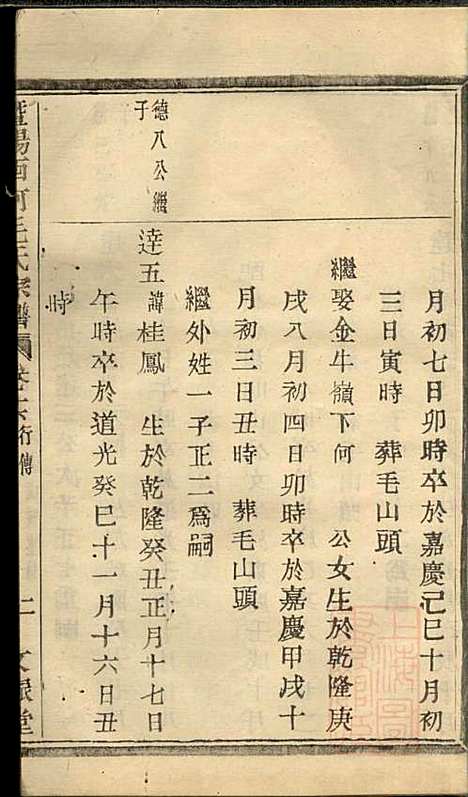 月初七日卯時卒於嘉慶己巳十月初
三日寅時 葬毛山頭
繼娶金牛嶺下何 公女生於乾隆庚
戌八月初四日卯時卒於嘉慶甲戌十
月初三日丑時 葬毛山頭
繼外姓一子正二為嗣
德八公繼
子
達五諱桂鳳 生於乾隆癸丑正月十七日
午時卒於道光癸巳十一月十六日丑
時
暨陽西河毛氏宗譜